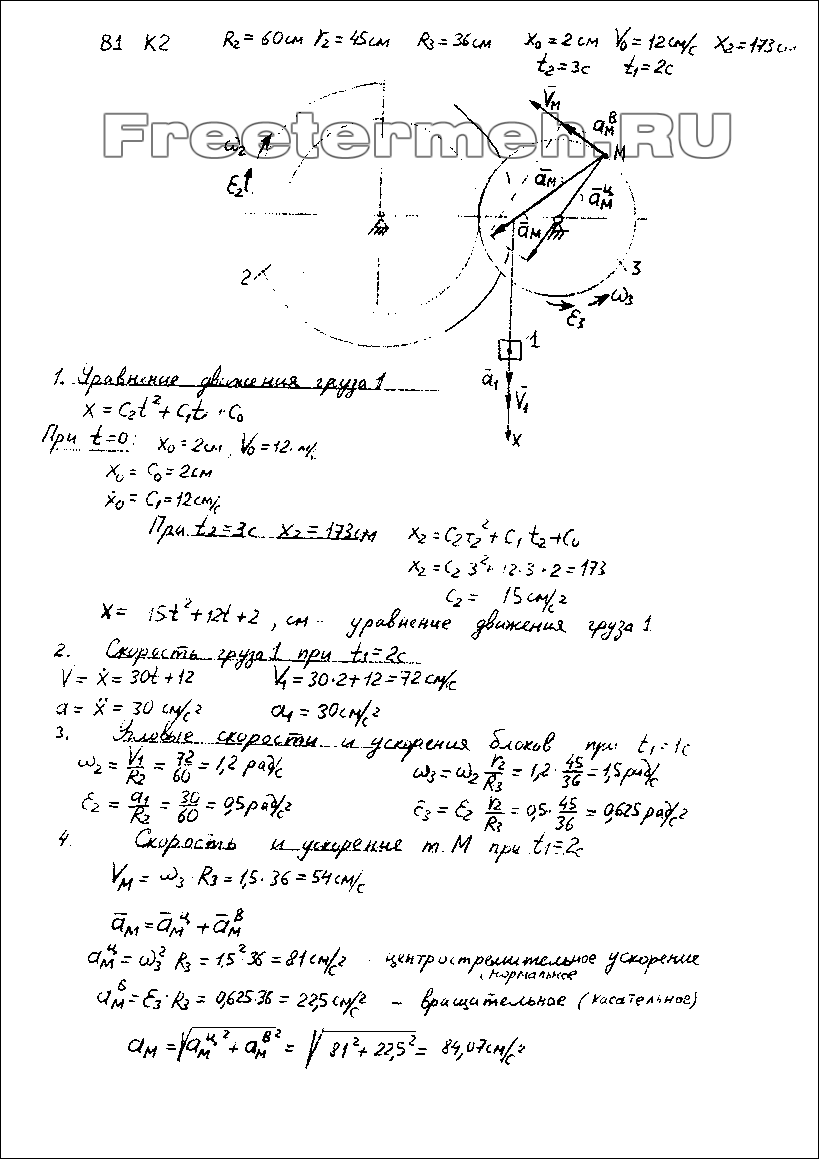 В1 К2 R₂=60см r₂=45см R₃=36см x₀=2см V₀=12см/с x₂=173см
t₂=3с t₁=2с
Freetermeh.RU
V̄м
aмᴮ
ω₂
M
ε₂
āм
āмᶣ
āм
2
3
ε₃ ω₃
1
ā₁
V̄₁
x
1. Уравнение движения груза 1
x = C₂t² + C₁t + C₀
При t=0: x₀=2см, V₀=12 м/с
x₀ = C₀ = 2см
ẋ₀ = C₁ = 12см/с
При t₂=3с x₂=173см x₂=C₂t₂²+C₁t₂+C₀
x₂=C₂·3²+12·3+2=173
C₂= 15см/с²
x= 15t²+12t+2, см - уравнение движения груза 1.
2. Скорость груза 1 при t₁=2с
V = ẋ = 30t+12 V₁=30·2+12=72см/с
a = ẍ = 30 см/с² a₁=30см/с²
3. Угловые скорости и ускорения блоков при t₁=1с
ω₂ = V₁/R₂ = 72/60 = 1,2 рад/с ω₃=ω₂ r₂/R₃ = 1,2·45/36 = 1,5рад/с
ε₂ = a₁/R₂ = 30/60 = 0,5рад/с² ε₃ = ε₂ r₂/R₃ = 0,5·45/36 = 0,625рад/с²
4. Скорость и ускорение т. М при t₁=2с
Vм = ω₃·R₃ = 1,5·36 = 54см/с
āм = āмᶣ + āмᴮ
aмᶣ = ω₃² R₃ = 1,5²·36 = 81см/с² - центростремительное ускорение
(нормальное
aмᴮ = ε₃·R₃ = 0,625·36 = 22,5см/с² - вращательное (касательное)
aм = √(aмᶣ² + aмᴮ²) = √(81²+22,5²) = 84,07см/с²